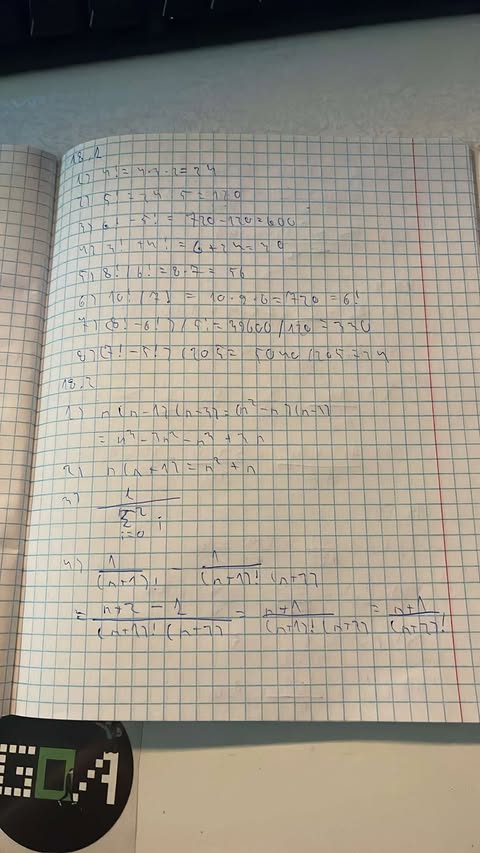 18.1
1) 4! = 4·3·2 = 24
2) 5! = 24·5 = 120
3) 6! - 5! = 720-120=600
4) 3! + 4! = 6+24=30
5) 8! / 6! = 8·7 = 56
6) 10! / 7! = 10·9·8=720 = 6!
7) (8! - 6!) / 5! = 39600 / 120 = 330
8) (7! - 5!) / 205 = 5040 / 205 = 24
18.2
1) n(n-1)(n-3) = (n²-n)(n-3)
= n³-3n²-n²+3n
2) n(n+1) = n²+n
3) 1 / Σ² i=0 i
4) 1/(n+1)! - 1/(n+1)!(n+2)
= n+2-1/(n+1)!(n+2) = n+1/(n+1)!(n+2) = n+1/(n+2)!
GOA